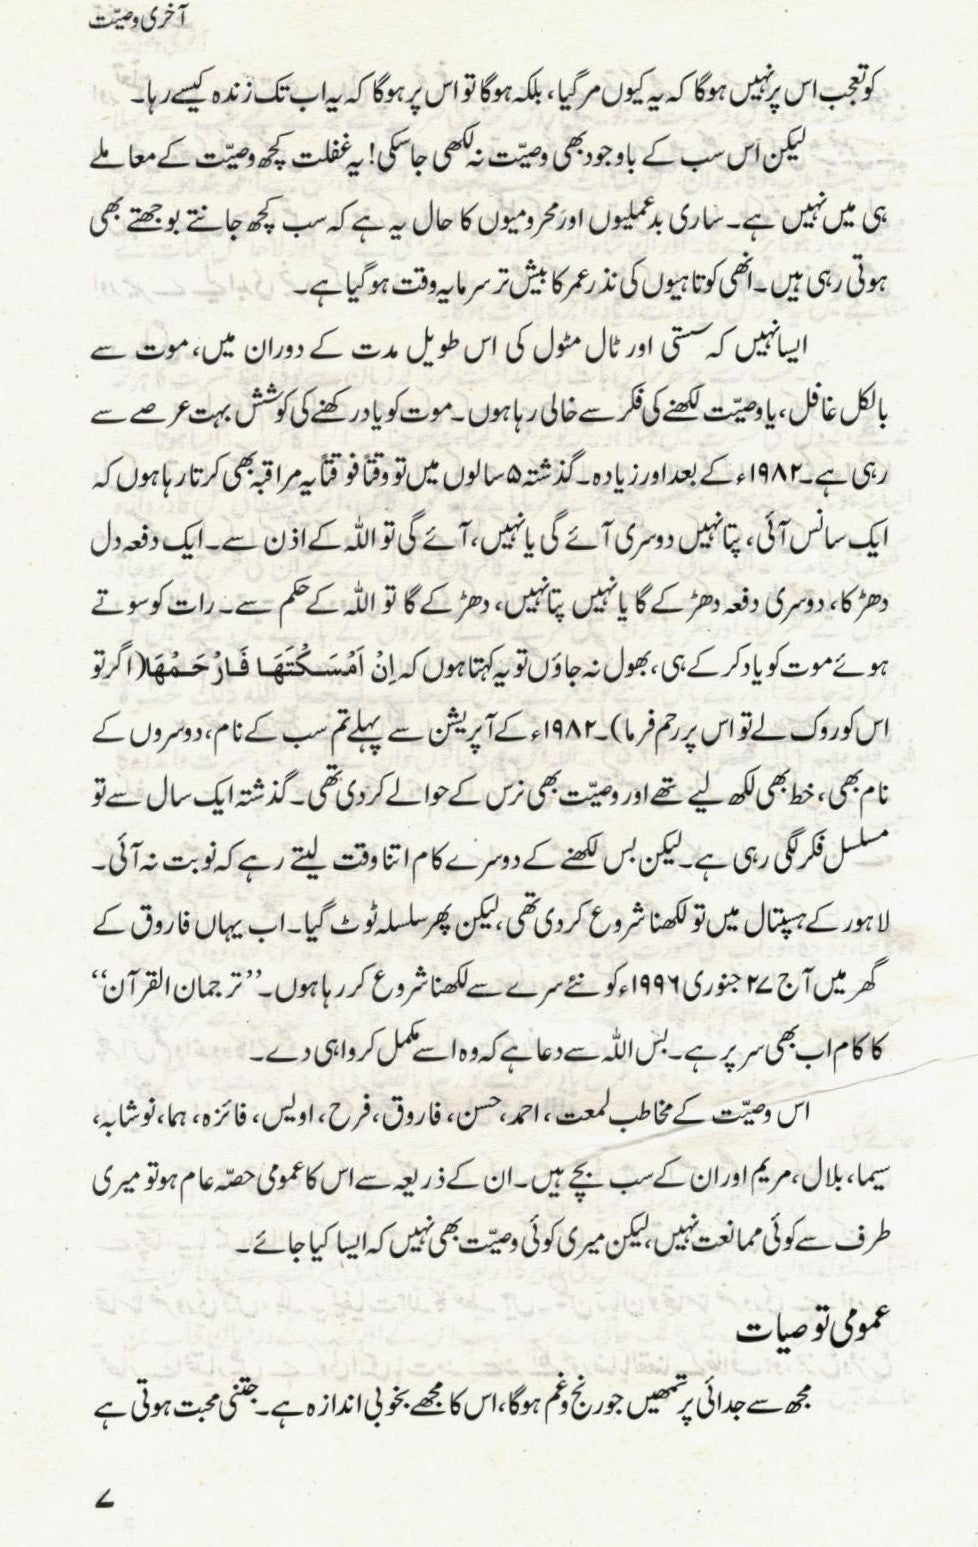 آخری وصیّت
کو تعجب اس پر نہیں ہوگا کہ یہ کیوں مر گیا، بلکہ ہوگا تو اس پر ہوگا کہ یہ اب تک زندہ کیسے رہا۔
لیکن اس سب کے باوجود بھی وصیّت نہ لکھی جا سکی! یہ غفلت کچھ وصیّت کے معاملے
ہی میں نہیں ہے۔ ساری بدعملیوں اور محرومیوں کا حال یہ ہے کہ سب کچھ جانتے بوجھتے بھی
ہوتی رہی ہیں۔ انھی کوتاہیوں کی نذر عمر کا بیش تر سرمایہ وقت ہوگیا ہے۔
ایسا نہیں کہ سستی اور ٹال مٹول کی اس طویل مدت کے دوران میں، موت سے
بالکل غافل، یا وصیّت لکھنے کی فکر سے خالی رہا ہوں۔ موت کو یاد رکھنے کی کوشش بہت عرصے سے
رہی ہے۔ ۱۹۸۲ء کے بعد اور زیادہ۔ گذشتہ ۵ سالوں میں تو وقتاً فوقتاً یہ مراقبہ بھی کرتا رہا ہوں کہ
ایک سانس آئی، پتا نہیں دوسری آئے گی یا نہیں، آئے گی تو اللہ کے اذن سے۔ ایک دفعہ دل
دھڑکا، دوسری دفعہ دھڑکے گا یا نہیں پتا نہیں، دھڑکے گا تو اللہ کے حکم سے۔ رات کو سوتے
ہوئے موت کو یاد کر کے ہی، بھول نہ جاؤں تو یہ کہتا ہوں کہ اِنْ اَمْسَکْتَهَا فَارْحَمْهَا (اگر تو
اس کو روک لے تو اس پر رحم فرما)۔ ۱۹۸۲ء کے آپریشن سے پہلے تم سب کے نام، دوسروں کے
نام بھی، خط بھی لکھ لیے تھے اور وصیّت بھی نرس کے حوالے کر دی تھی۔ گذشتہ ایک سال سے تو
مسلسل فکر لگی رہی ہے۔ لیکن بس لکھنے کے دوسرے کام اتنا وقت لیتے رہے کہ نوبت نہ آئی۔
لاہور کے ہسپتال میں تو لکھنا شروع کر دی تھی، لیکن پھر سلسلہ ٹوٹ گیا۔ اب یہاں فاروق کے
گھر میں آج ۲۷ جنوری ۱۹۹۶ء کو نئے سرے سے لکھنا شروع کر رہا ہوں۔ ”ترجمان القرآن“
کا کام اب بھی سر پر ہے۔ بس اللہ سے دعا ہے کہ وہ اسے مکمل کروا ہی دے۔
اس وصیّت کے مخاطب لمعت، احمد، حسن، فاروق، فرح، اویس، فائزہ، ہما، نوشابہ،
سیما، بلال، مریم اور ان کے سب بچے ہیں۔ ان کے ذریعہ سے اس کا عمومی حصّہ عام ہو تو میری
طرف سے کوئی ممانعت نہیں، لیکن میری کوئی وصیّت بھی نہیں کہ ایسا کیا جائے۔
عمومی توصیات
مجھ سے جدائی پر تمھیں جو رنج و غم ہوگا، اس کا مجھے بخوبی اندازہ ہے۔ جتنی محبت ہوتی ہے
۷